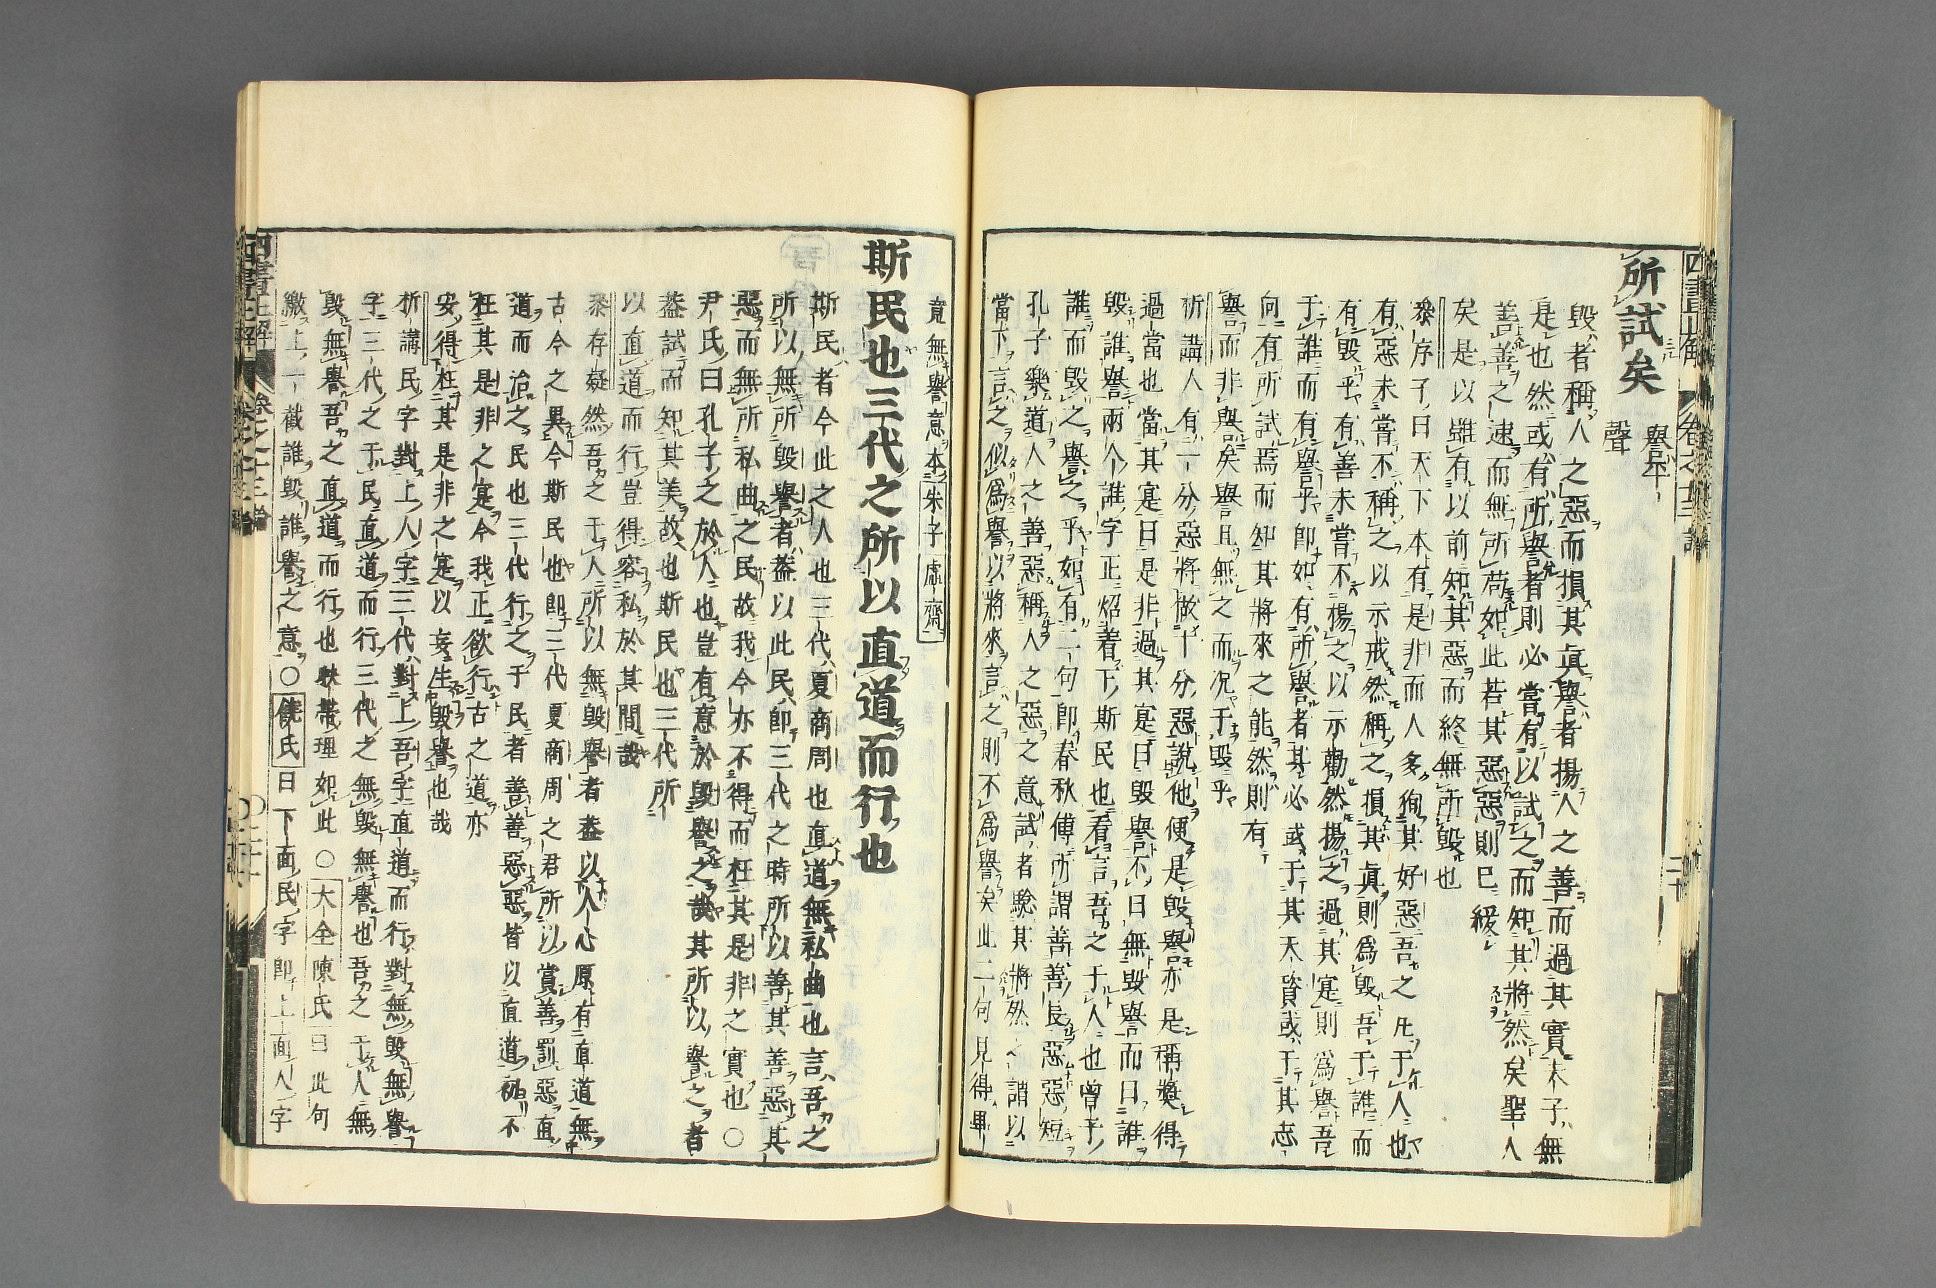 所試矣 譽平聲
毀者稱人之惡而損其眞譽者揚人之善而過其實夫子無
是也然或有所譽者則必嘗有以試之而知其將然矣聖人
善善之速而無所苟如此若其惡惡則已緩
矣是以雖有以前知其惡而終無所毀也
叅序子曰天下本有是非而人多狥其好惡吾之凡于人也
有惡未嘗不稱之以示戒然稱之損其眞則爲毀吾于誰而
有毀乎有善未嘗不揚之以示勸然揚之過其寔則爲譽吾
于誰而有譽乎卽如有所譽者其必或于其天資或于其志
向有所試焉而知其將來之能然則有
譽而非譽矣譽且無之而况于毀乎
析講人有一分惡將做十分惡說他便是毀譽亦是稱奬得
過當也當其寔曰是非過其寔曰毀譽不曰無毀譽而曰誰
毀誰譽兩个誰字正炤着下斯民也看言吾之于人也曾乎
誰而毀之譽之乎如有二句卽春秋傳所謂善善長惡惡短
孔子樂道人之善惡稱人之惡之意試者驗其將然之謂以
當下言之似爲譽以將來言之則不爲譽矣此二句見得畢
竟無譽意本朱子虛齋
斯民也三代之所以直道而行也
斯民者今此之人也三代夏商周也直道無私曲也言吾之
所以無所毀譽者葢以此民卽三代之時所以善其善惡其
惡而無所私曲之民故我今亦不得而枉其是非之實也○
尹氏曰孔子之於人也豈有意於毀譽之哉其所以譽之者
葢試而知其美故也斯民也三代所
以直道而行豈得容私於其間哉
叅存疑然吾之于人所以無毀譽者葢以人心原有直道無
古今之異今斯民也卽三代夏商周之君所以賞善罰惡直
道而治之民也三代行之于民者善善惡惡皆以直道初不
枉其是非之寔今我正欲行古之道亦
安得枉其是非之寔以妄生毀譽也哉
析講民字對上人字三代對上吾字直道而行對無毀無譽
字三代之于民直道而行三代之無毀無譽也吾之于人無
毀無譽吾之直道而行也映帶理如此○大全陳氏曰此句
繳上一截誰毀誰譽之意○饒氏曰下面民字卽上面人字